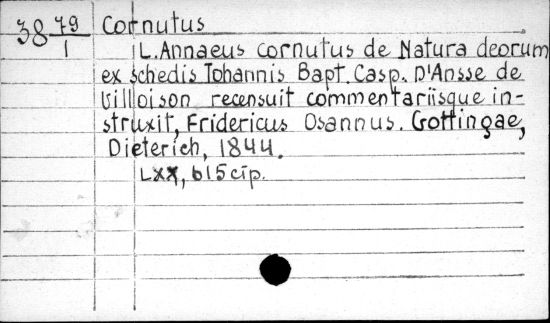 38 79/1
Cornutus
L. Annaeus cornutus de Natura deorum
ex schedis Iohannis Bapt. Casp. D'Ansse de
Villoison recensuit commentariisque in-
struxit, Fridericus Osannus. Gottingae,
Dieterich, 1844.
LXX, 615 стр.